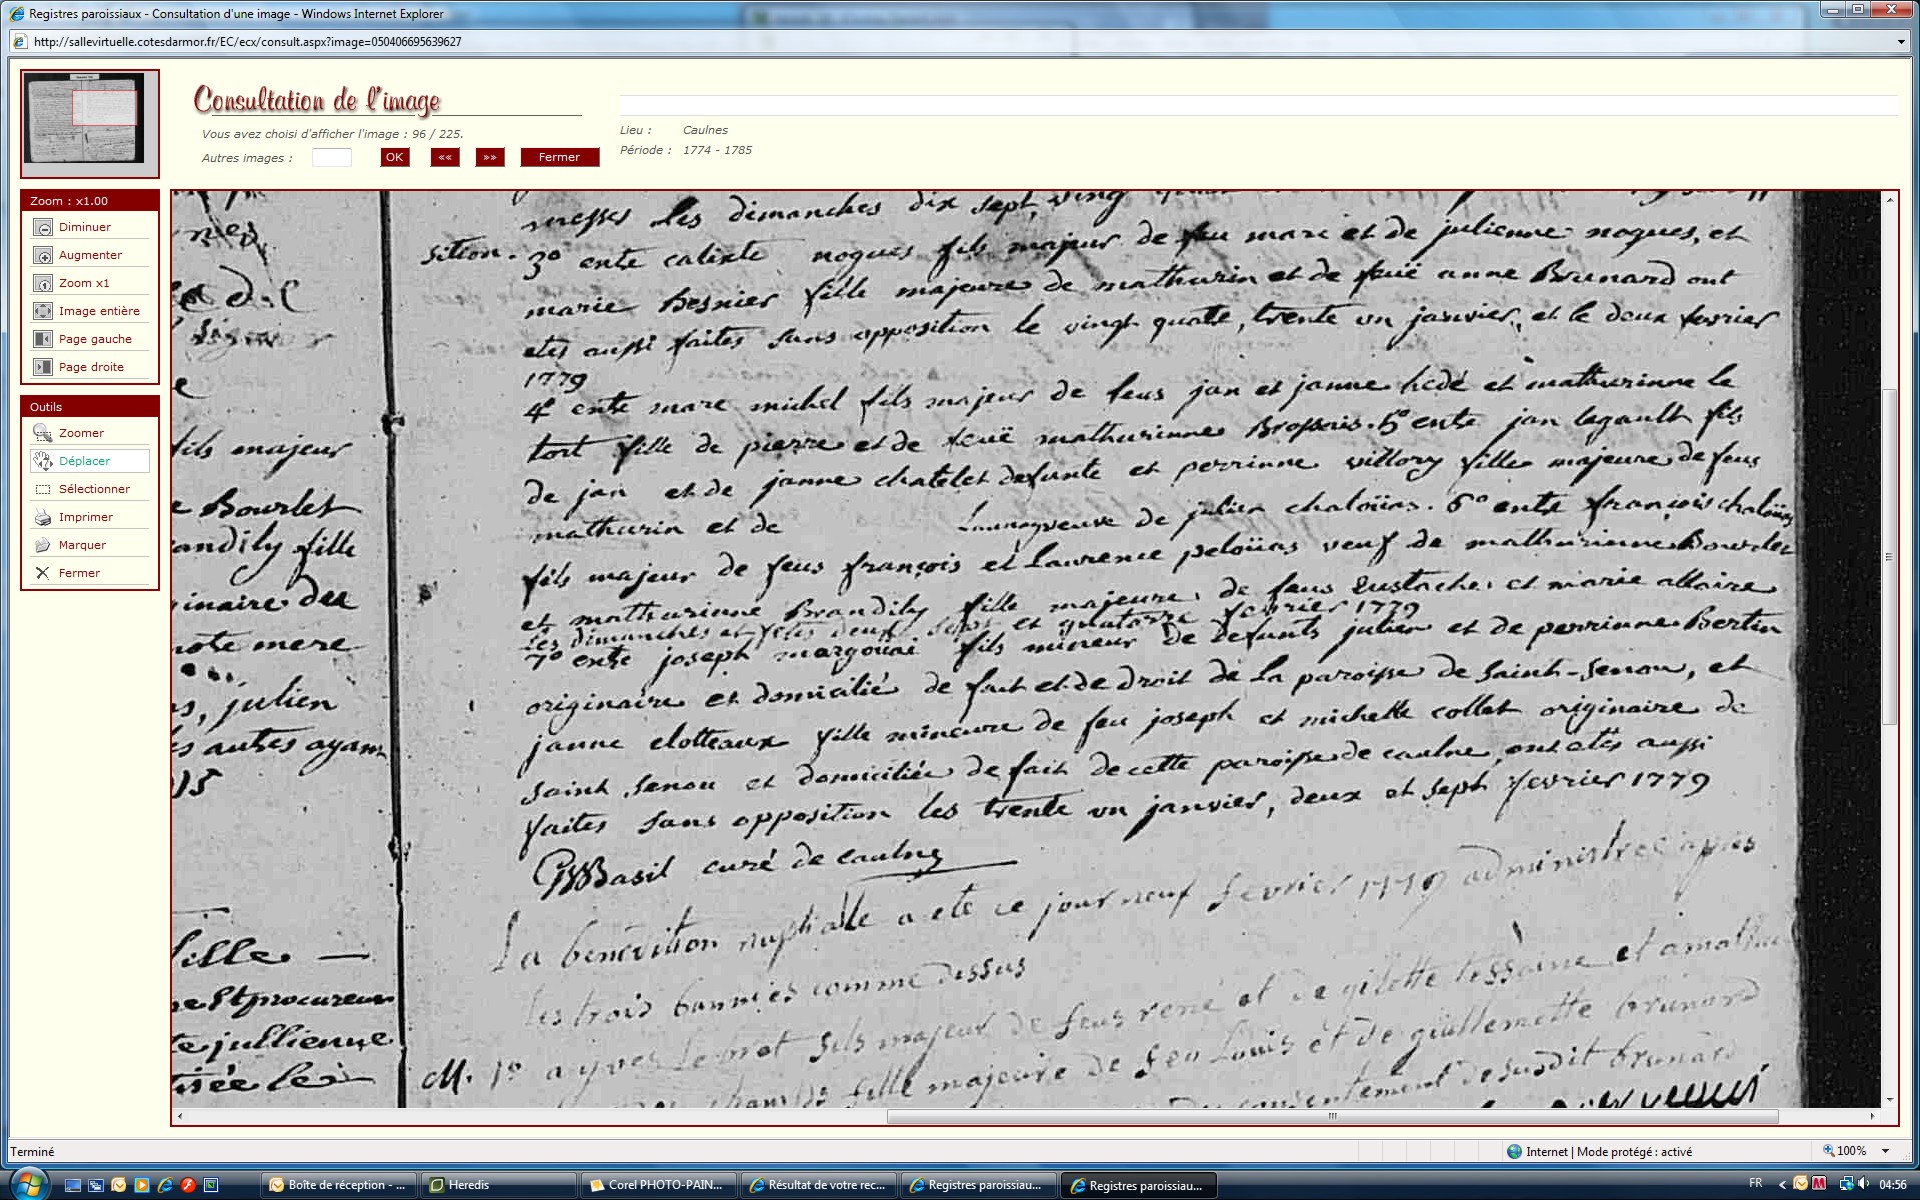 Registres paroissiaux - Consultation d'une image - Windows Internet Explorer
http://sallevirtuelle.cotesdarmor.fr/EC/ecx/consult.aspx?image=050406695639627
Consultation de l'image
Vous avez choisi d'afficher l'image : 96 / 225.
Autres images :
OK
««
»»
Fermer
Lieu : Caulnes
Période : 1774 - 1785
Zoom : x1.00
Diminuer
Augmenter
Zoom x1
Image entière
Page gauche
Page droite
Outils
Zoomer
Déplacer
Sélectionner
Imprimer
Marquer
Fermer
fils majeur
e Bourlet
andily fille
inaire du
mere
s, julien
s autres ayant
fille
procureur
te jullienne
messes les dimanches dix sept, ving
sition. 3º entre calixte nogues fils majeur de feu marc et de julienne nogues, et
marie Besnier fille majeure de mathurin et de feuë anne Brunard ont
etés aussi faites sans opposition le vingt quatre, trente un janvier, et le deux fevrier
1779
4º entre marc michel fils majeur de feus jan et janne hedé et mathurinne le
tort fille de pierre et de feuë mathurinne Brossais. 5º entre jan legault fils
de jan et de janne chatelet defunte et perrinne villory fille majeure de feus
mathurin et de Launay veuve de julien chaloüas. 6º entre françois chaloüas
fils majeur de feus françois et laurence peloüas veuf de mathurinne Bourdet
et mathurinne Brandily fille majeure de feus Eustache et marie allaire
les dimanches et fetes deux, sept et quatorze fevrier 1779
7º entre joseph margouai fils mineur de defunts julien et de perrinne Bertin
originaire et domicilié de fait et de droit de la paroisse de Saint-Senou, et
janne clotteaux fille mineure de feu joseph et michelle collet originaire de
saint Senou et domiciliée de fait de cette paroisse de caulne, ont etés aussi
faites sans opposition les trente un janvier, deux et sept fevrier 1779
Basil curé de caulne
La benediction nuptialle a ete ce jour neuf fevrier 1779 administree apres
les trois bannies comme dessus
M. 1º a yves Lebret fils majeur de feus rené et de gilette tessaine et a
fille majeure de feu Louis et de guillemette brunard
consentement de susdit brunard
Terminé
Internet | Mode protégé : activé
100%
Boîte de réception - ...
Heredis
Corel PHOTO-PAIN...
Résultat de votre rec...
Registres paroissiau...
Registres paroissiau...
FR
04:56